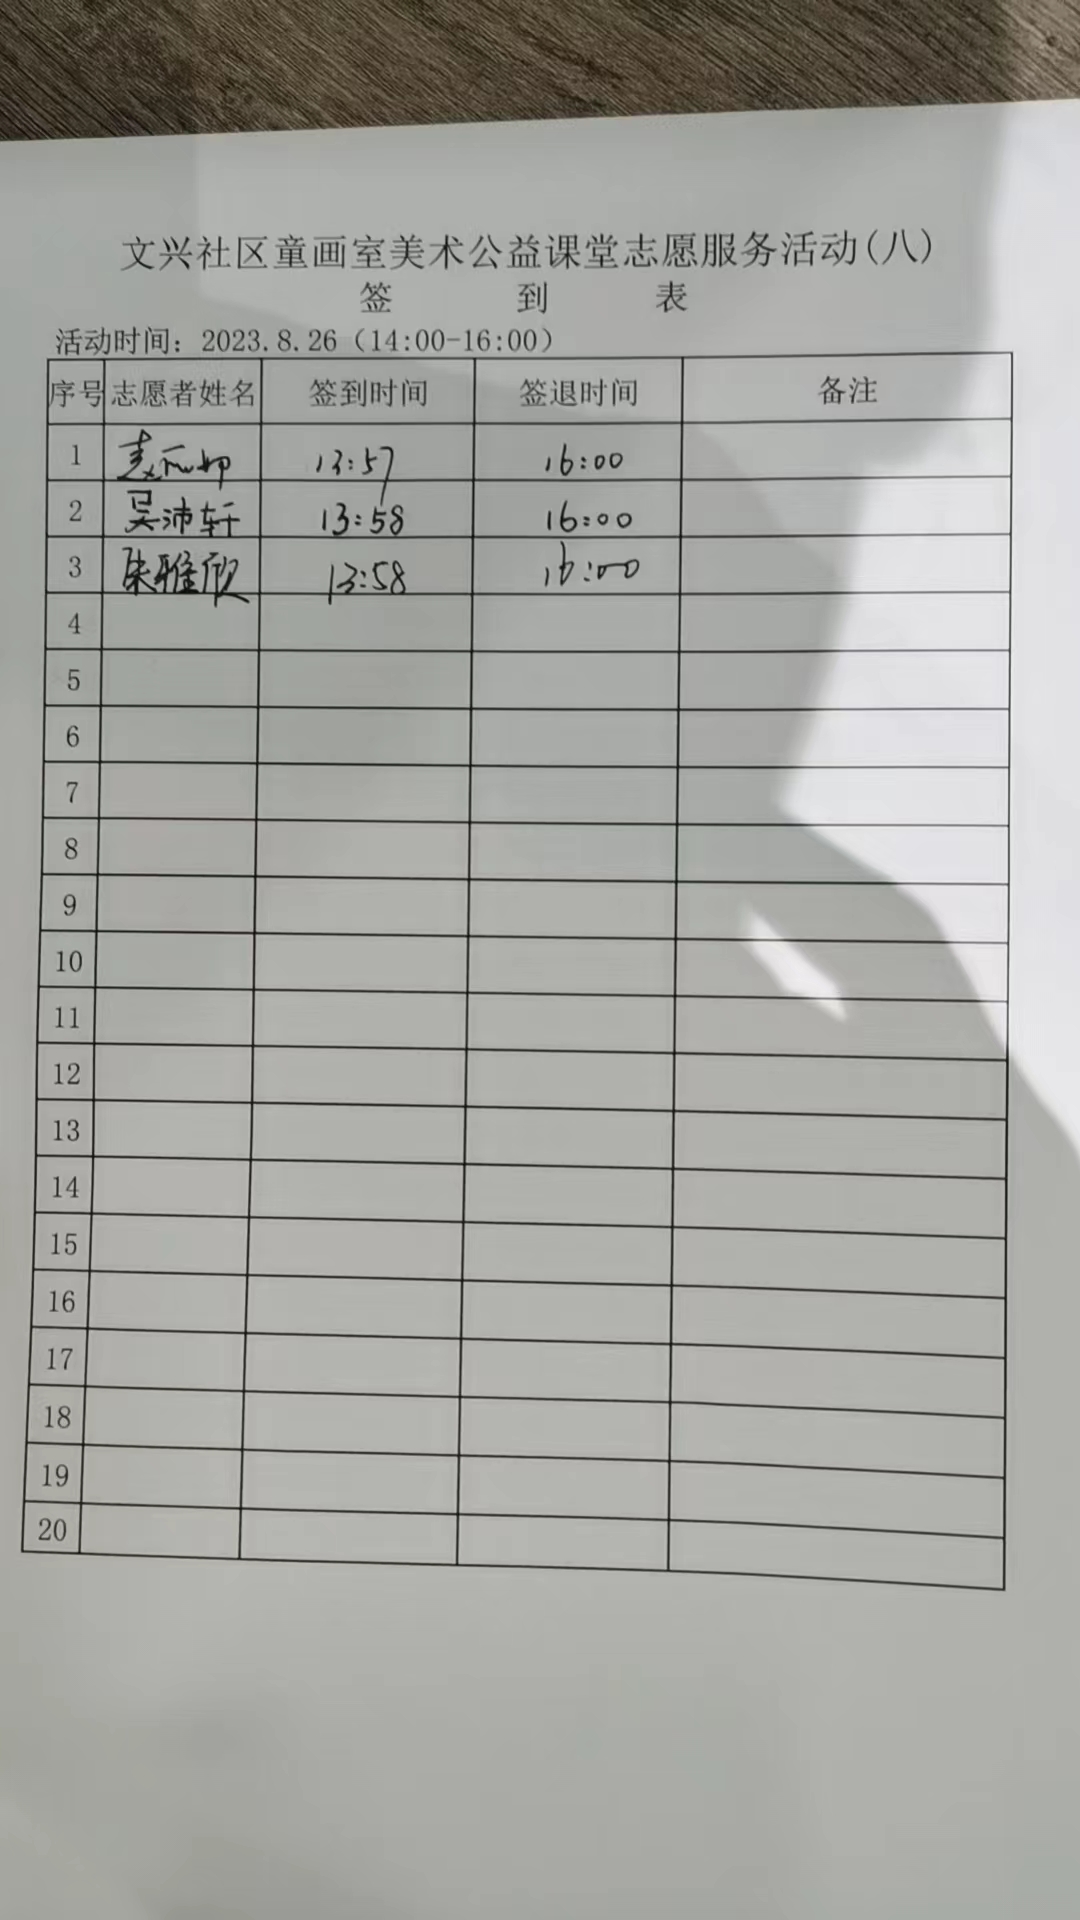 文兴社区童画室美术公益课堂志愿服务活动(八)
签 到 表
活动时间：2023.8.26（14:00-16:00）
序号 志愿者姓名 签到时间 签退时间 备注
1 13:57 16:00
2 吴沛轩 13:58 16:00
3 朱雅欣 13:58 16:00
4
5
6
7
8
9
10
11
12
13
14
15
16
17
18
19
20